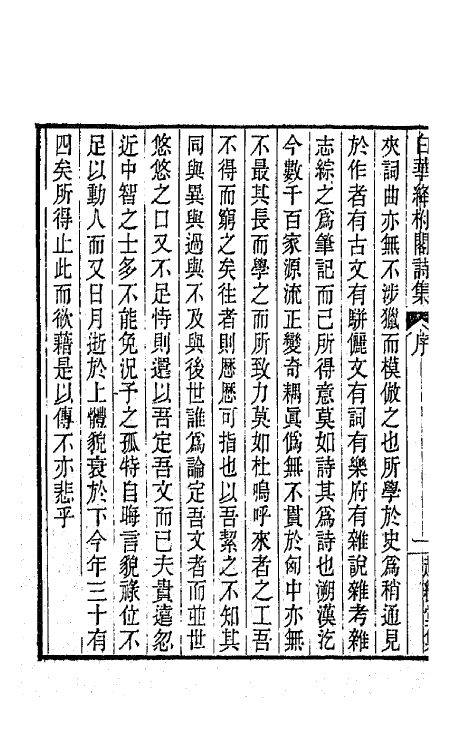 白華絳柎閣詩集　序
夾詞曲亦無不涉獵而模倣之也所學於史爲稍通見
於作者有古文有駢儷文有詞有樂府有雜說雜考雜
志綜之爲筆記而已所得意莫如詩其爲詩也溯漢迄
今數千百家源流正變奇耦眞僞無不貫於匈中亦無
不最其長而學之而所致力莫如杜嗚呼來者之工吾
不得而窮之矣往者則歷歷可指也以吾絜之不知其
同與異與過與不及與後世誰爲論定吾文者而並世
悠悠之口又不足恃則還以吾定吾文而已夫貴遠忽
近中智之士多不能免況予之孤特自晦言貌祿位不
足以動人而又日月逝於上體貌衰於下今年三十有
四矣所得止此而欲藉是以傳不亦悲乎